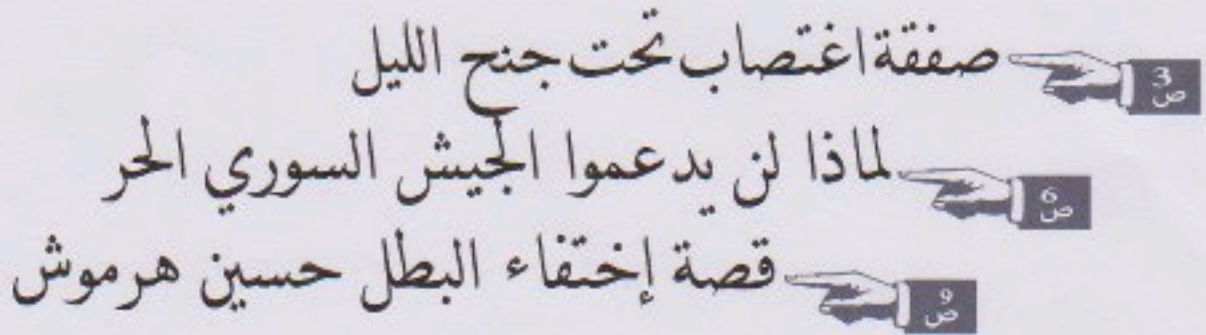 3 ص صفقة اغتصاب تحت جنح الليل
6 ص لماذا لن يدعموا الجيش السوري الحر
9 ص قصة إختفاء البطل حسين هرموش